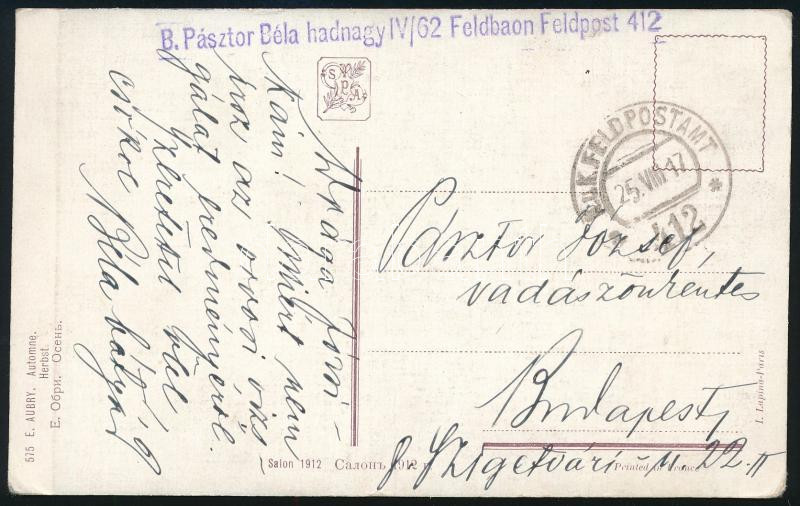 B. Pásztor Béla hadnagy IV/62 Feldbaon Feldpost 412
S P A
K.u.K. FELDPOSTAMT
25.VIII.17
412
Drága Józsi-
kám! Miért nem
írsz az orvosi vizs
gálat eredményéről.
Szeretettel ölel
csókol
Béla bátyád
Pásztor József,
vadászönkentes
Budapest,
Szigetvári u. 22. II
575 E. AUBRY. Automne.
Herbst.
Е. Обри. Осень.
Salon 1912 Салонъ 1912 г.
Printed in France
I. Lapina-Paris